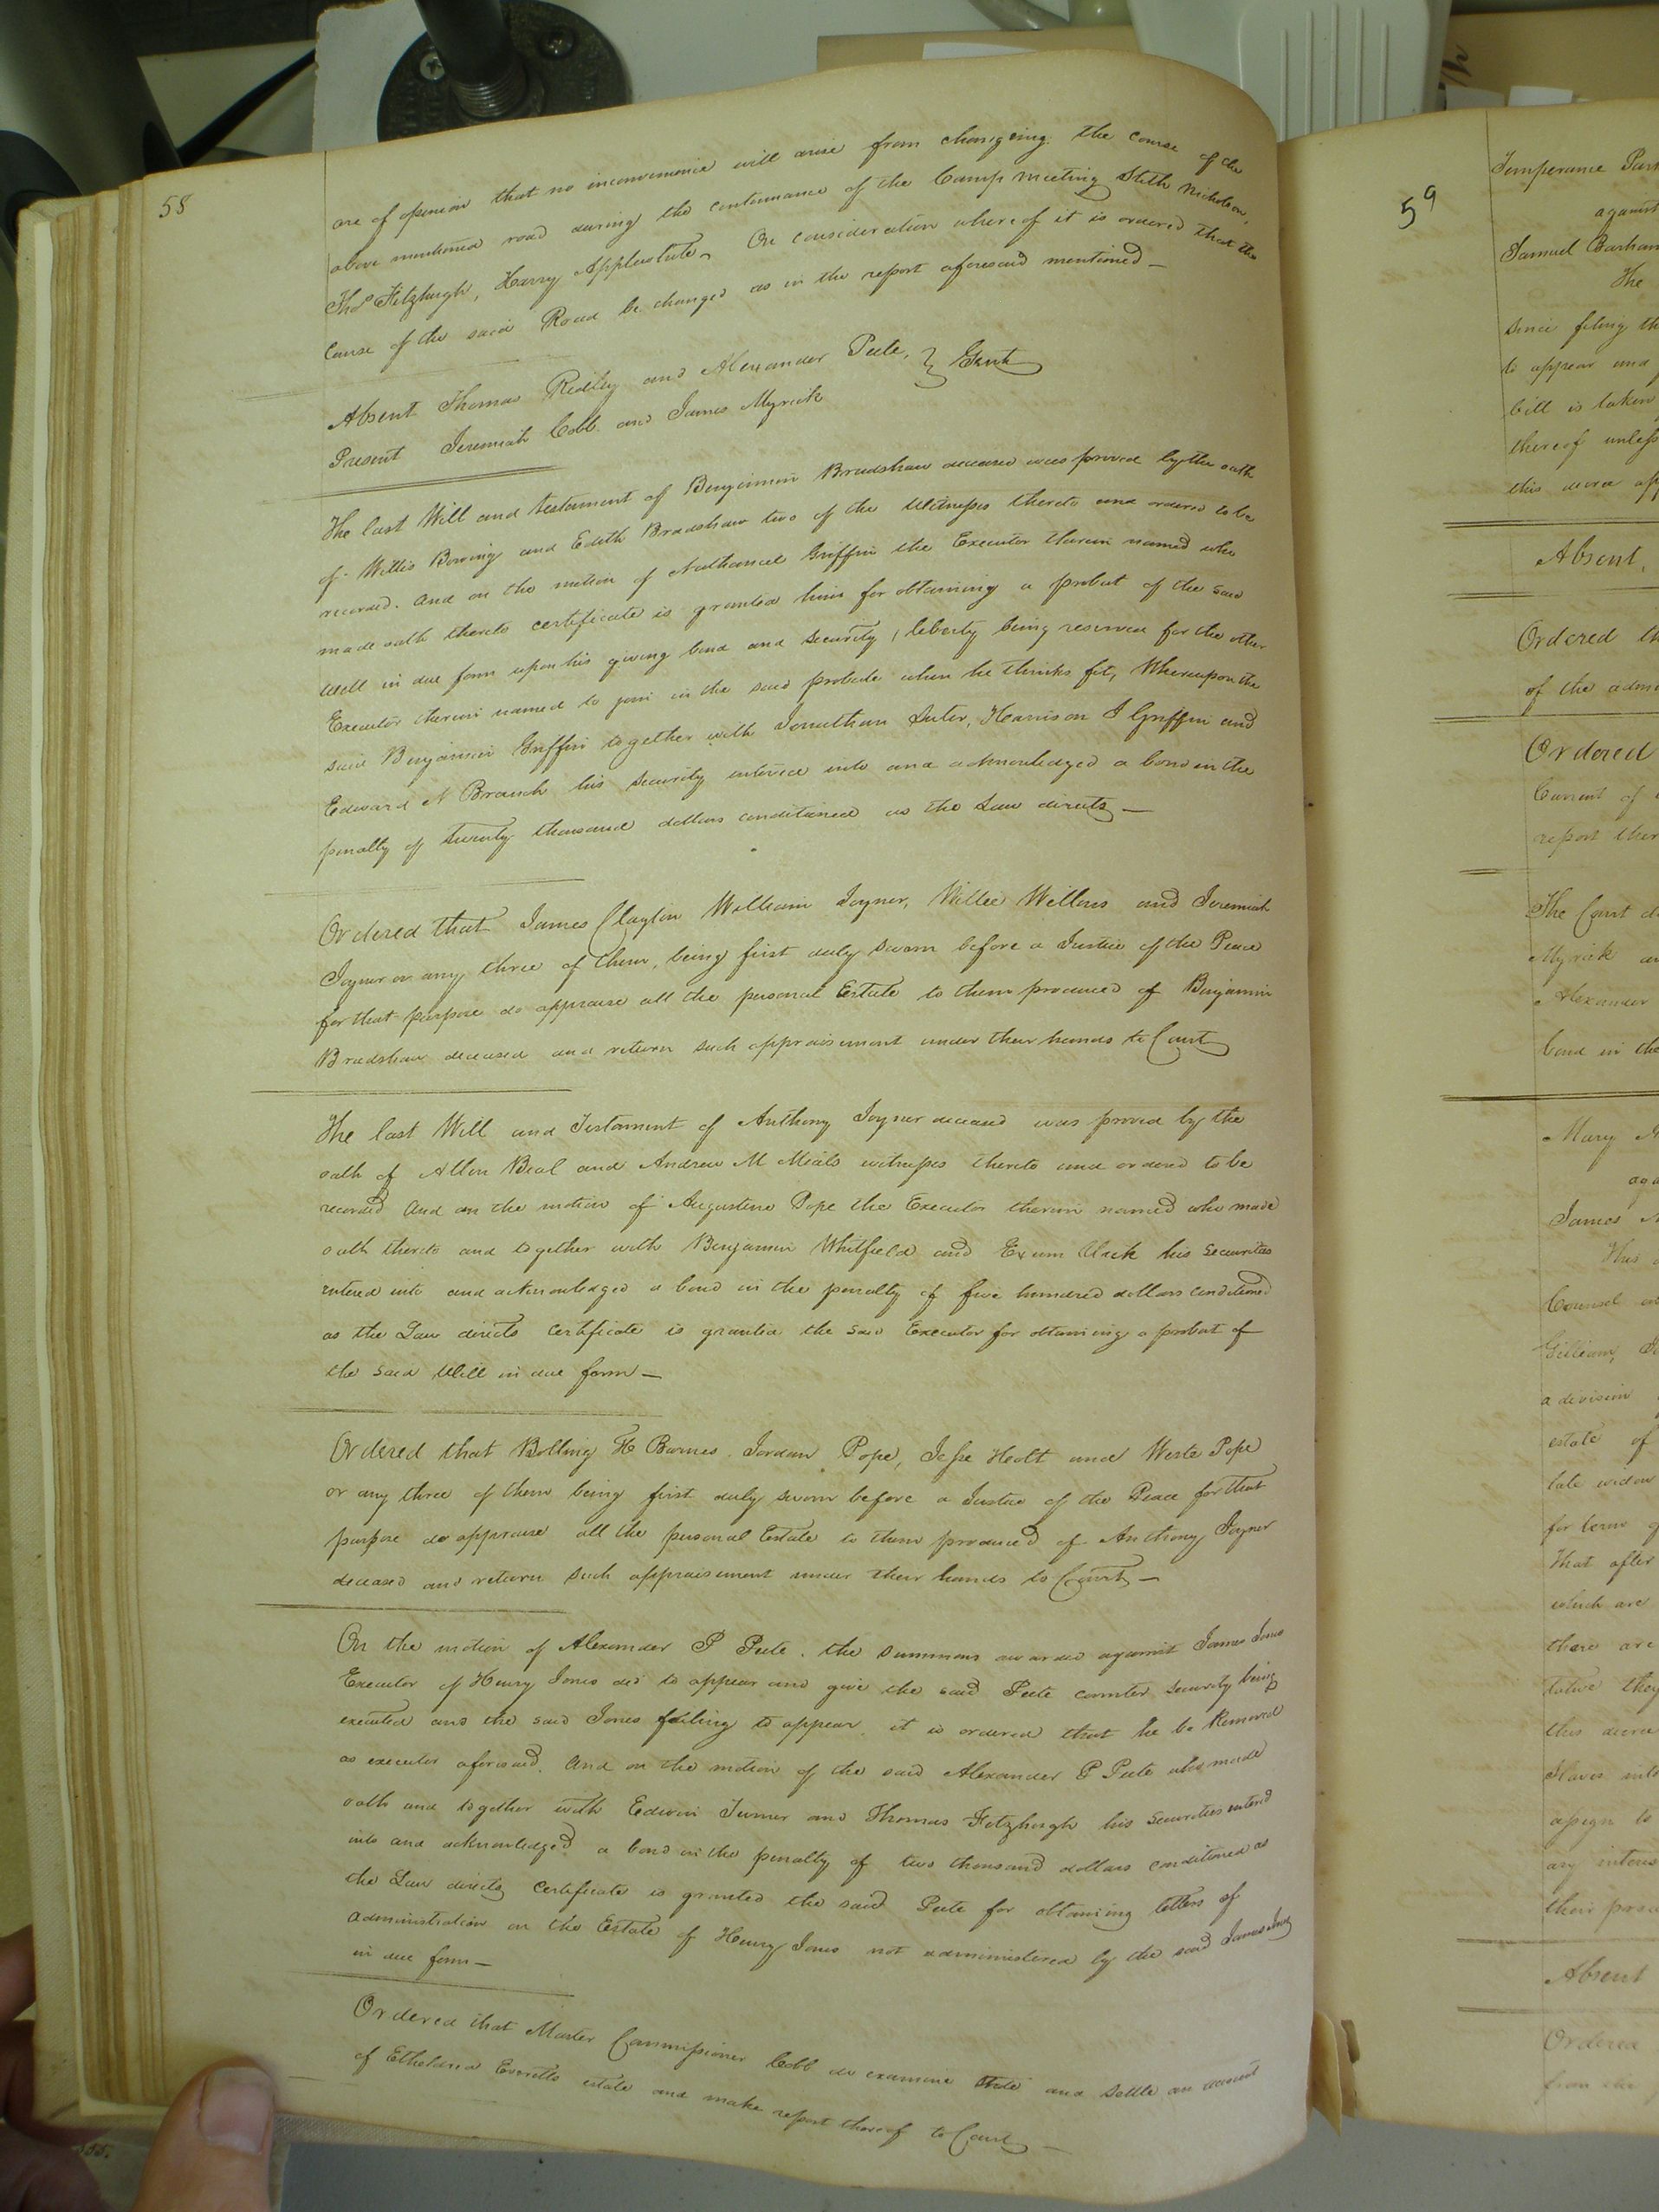 58
are of opinion that no inconvenience will arise from changeing the course of the
above mentioned road during the continuance of the Camp meeting Stith Nicholson,
Thos Fitzhugh, Harry Applewhite. On consideration whereof it is ordered that the
Course of the said Road be changed as in the report aforesaid mentioned —
Absent Thomas Ridley and Alexander Peete, } Gent
Present Jeremiah Cobb and James Myrick
The last Will and testament of Benjamin Bradshaw deceased was proved by the oath
of Willis Bowing and Edith Bradshaw two of the Witnesses thereto and ordered to be
recorded. And on the motion of Nathaniel Griffin the Executor therein named who
made oath thereto certificate is granted him for obtaining a probat of the said
Will in due form upon his giving bond and security, liberty being reserved for the other
Executor therein named to join in the said probate when he thinks fit, Whereupon the
said Benjamin Griffin together with Jonathan Suter, Harrison J Griffin and
Edward N Branch his security entered into and acknowledged a bond in the
penalty of twenty thousand dollars conditioned as the Law directs —
Ordered that James Clayton William Joyner, Willie Wellons and Jeremiah
Joyner or any three of them, being first duly sworn before a Justice of the Peace
for that purpose do appraise all the personal Estate to them produced of Benjamin
Bradshaw deceased and return such appraisement under their hands to Court
The last Will and Testament of Anthony Joyner deceased was proved by the
oath of Allen Beal and Andrew M Meals witnesses thereto and ordered to be
recorded And on the motion of Augustine Pope the Executor therein named who made
oath thereto and together with Benjamin Whitfield and Exum his securities
entered into and acknowledged a bond in the penalty of five hundred dollars conditioned
as the Law directs certificate is granted the said Executor for obtaining a probat of
the said Will in due form —
Ordered that Bolling H Barnes Jordan Pope, Jesse Holt and Pope
or any three of them being first duly sworn before a Justice of the Peace for that
purpose do appraise all the personal Estate to them produced of Anthony Joyner
deceased and return such appraisement under their hands to Court —
On the motion of Alexander P Peete, the summons awarded against James Jones
Executor of Henry Jones decd to appear and give the said Peete counter security being
executed and the said Jones failing to appear, it is ordered that he be Removed
as executor aforesaid. And on the motion of the said Alexander P Peete who made
oath and together with Edwin Turner and Thomas Fitzhugh his Securities entered
into and acknowledged a bond in the penalty of two thousand dollars conditioned as
the Law directs Certificate is granted the said Peete for obtaining letters of
administration on the Estate of Henry Jones not administered by the said James Jones
in due form —
Ordered that Master Commissioner Cobb do examine state and settle an account
of Etheldred Everetts estate and make report thereof to Court —
59
Temperance
against
Samuel Barham
The
since filing th
to appear and
bill is taken
thereof unless
this decree
Absent,
Ordered th
of the
Ordered
Current of
report ther
The Court
Myrick
Alexander
bond in the
Mary
aga
James
This
Counsel
Gilliam,
a division
estate of
late widow
for term
That after
which are
there are
they
this decree
Slaves
assign to
any
their
Absent
Ordered
from the